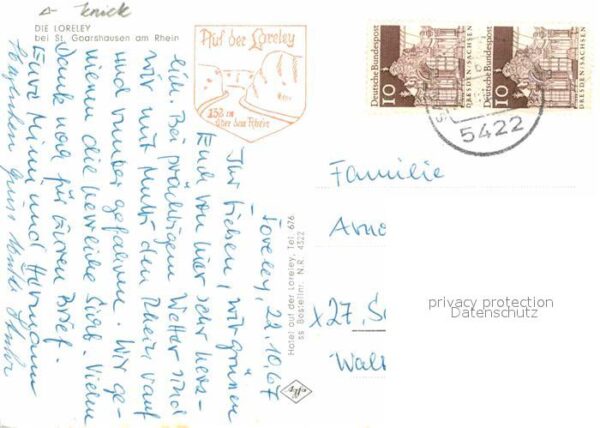 Knick
DIE LORELEY
bei St. Goarshausen am Rhein
Auf der Loreley
132 m
über dem Rhein
Deutsche Bundespost
10
DRESDEN-SACHSEN
Deutsche Bundespost
10
DRESDEN-SACHSEN
5422
Loreley, 22.10.67
Ihr Lieben, wir grüssen
Euch von hier sehr herz-
lich. Bei prächtigem Wetter sind
wir mit Mutti den Rhein rauf
und runter gefahren. Wir ge-
niessen die herrliche Sicht. Vielen
Dank noch für Euren Brief.
Eure Mimi und Hermann
Herzlichen Gruss
Hotel auf der Loreley, Tel. 676
ss Bestellnr. N.R. 4322
Familie
Arno
x27. Sc
Wal
privacy protection
Datenschutz